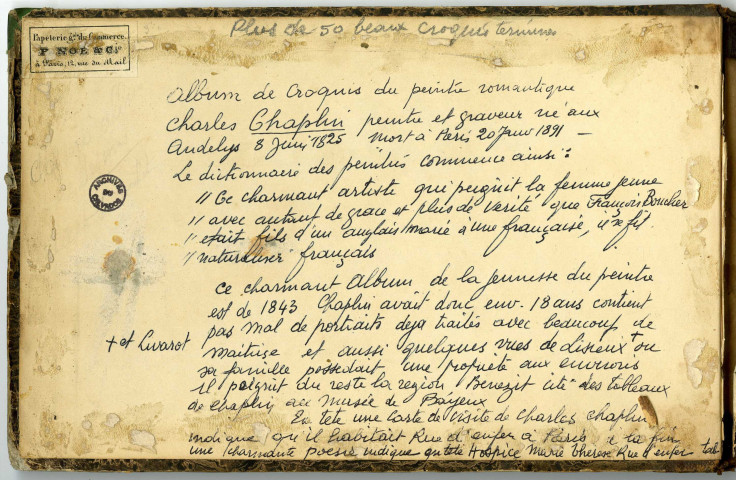 Plus de 50 beaux croquis terminés
Papeterie gle du Commerce
P. NOË & Cie
à Paris, 12, rue du Mail
album de croquis du peintre romantique
Charles Chaplin peintre et graveur né aux
Andelys 8 Juin 1825 mort à Paris 20 Janv 1891 —
Le dictionnaire des peintres commence ainsi :
" Ce charmant artiste qui peignit la femme jeune
" avec autant de grace et plus de verité que François Boucher
" etait fils d'un anglais marié à une française, il se fit
" naturaliser français
ARCHIVES
DU
CALVADOS
ce charmant Album de la jeunesse du peintre
est de 1843 Chaplin avait donc env. 18 ans contient
pas mal de portraits deja traités avec beaucoup de
maitrise et aussi quelques vues de Lisieux + ou
+ et Livarot
sa famille possedait une propriété aux environs
il peignit du reste la region Benezit cite des tableaux
de Chaplin au Musée de Bayeux
En tete une carte de visite de Charles Chaplin
indique qu'il habitait Rue d'enfer à Paris à la fin
une charmante poesie indique Hospice Marie Thérèse Rue d'enfer